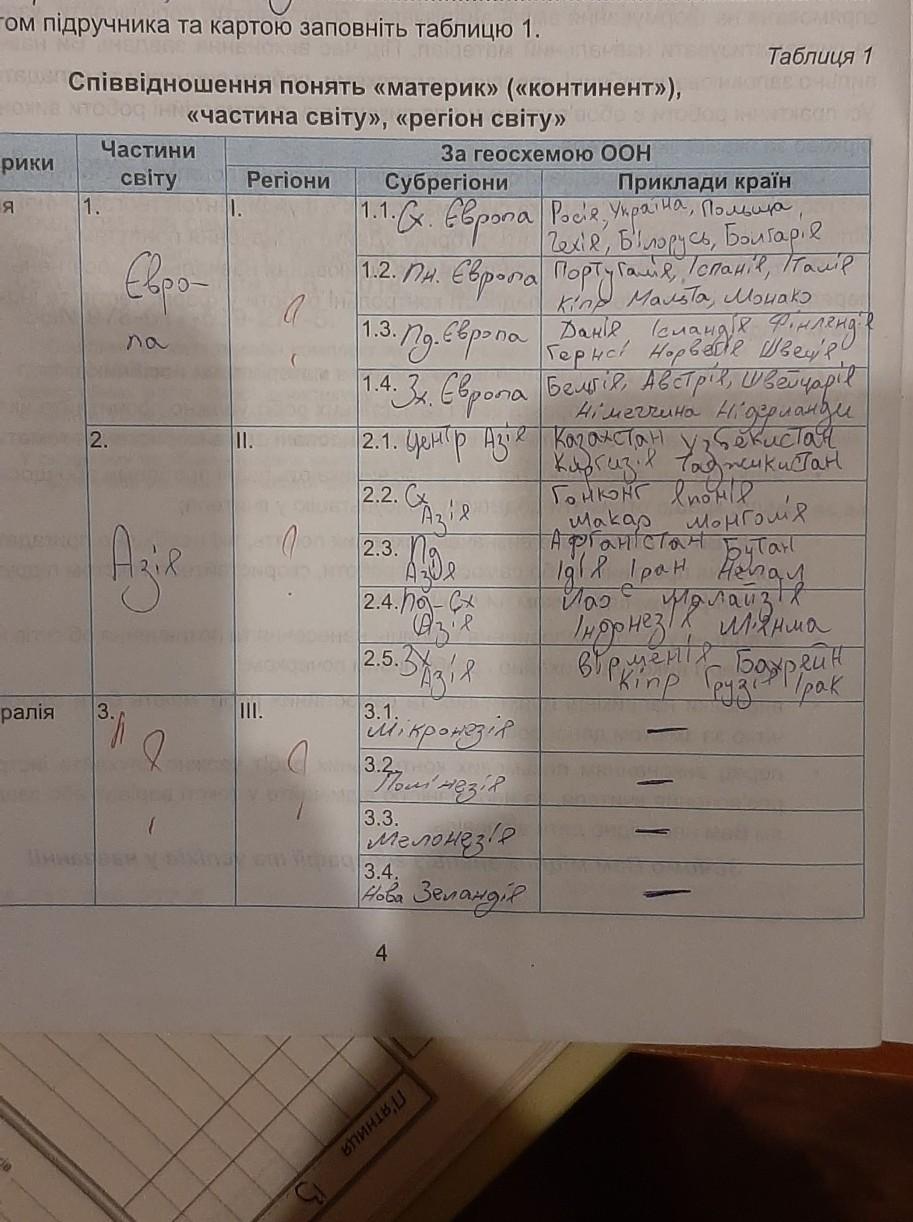 ом підручника та картою заповніть таблицю 1.
Таблиця 1
Співвідношення понять «материк» («континент»),
«частина світу», «регіон світу»
рики
Частини
світу
За геосхемою ООН
Регіони
Субрегіони
Приклади країн
я
1.
Євро-
па
I.
?
1.1. Сх. Європа
Росія, Україна, Польща,
Чехія, Білорусь, Болгарія
1.2. Пн. Європа
Португалія, Іспанія, Італія
Кіпр Мальта, Монако
1.3. Пд. Європа
Данія Ісландія Фінлянdія
Гернсі Норвегія Швеція
1.4. Зх. Європа
Бельгія, Австрія, Швейцарія
Німеччина Нідерланди
2.
Азія
II.
?
2.1. Центр Азія
Казахстан Узбекистан
Киргизія Таджикистан
2.2. Сх
Азія
Гонконг Японія
Макар Монголія
2.3. Пд
Азія
Афганістан Бутан
Іdія Іран Непал
2.4. Пд-Сх
Азія
Лаос Малайзія
Індонезія М'янма
2.5. Зх
Азія
Вірменія Бахрейн
Кіпр Грузія Ірак
ралія
3.
?
III.
?
3.1.
Мікронезія
—
3.2.
Полінезія
—
3.3.
Меланезія
—
3.4.
Нова Зеландія
—
4
П'ЯТНИЦЯ